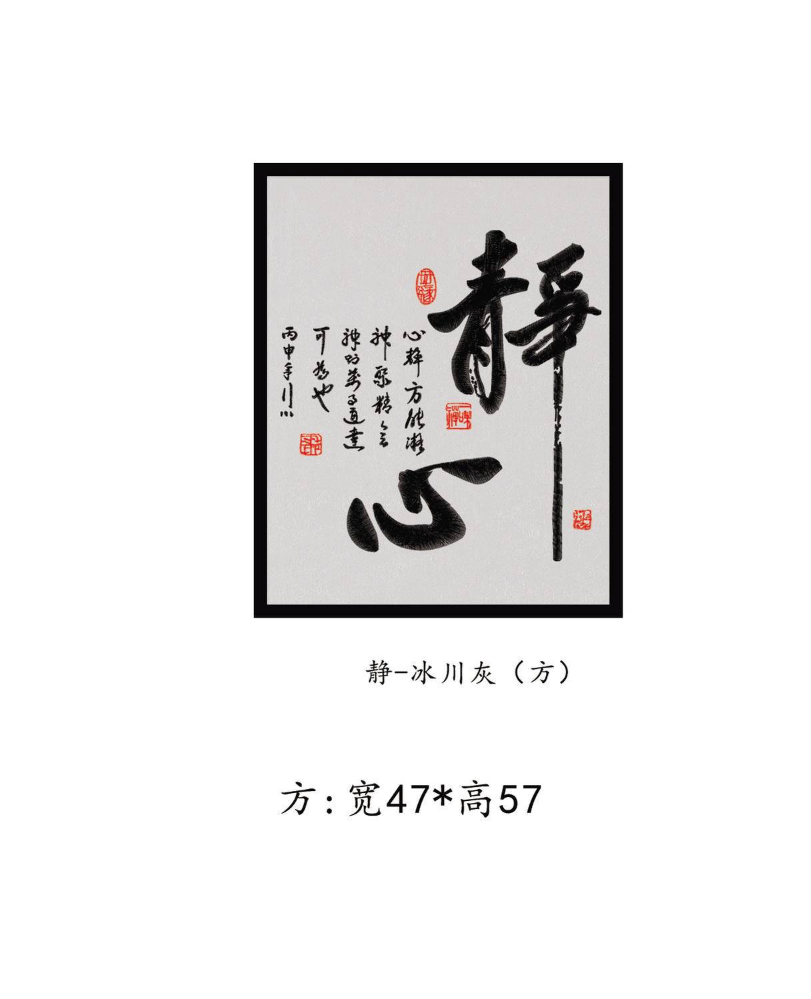 静心
心静方能凝
神聚精会
神则万事通达
可为也
丙申年
静-冰川灰（方）
方:宽47*高57